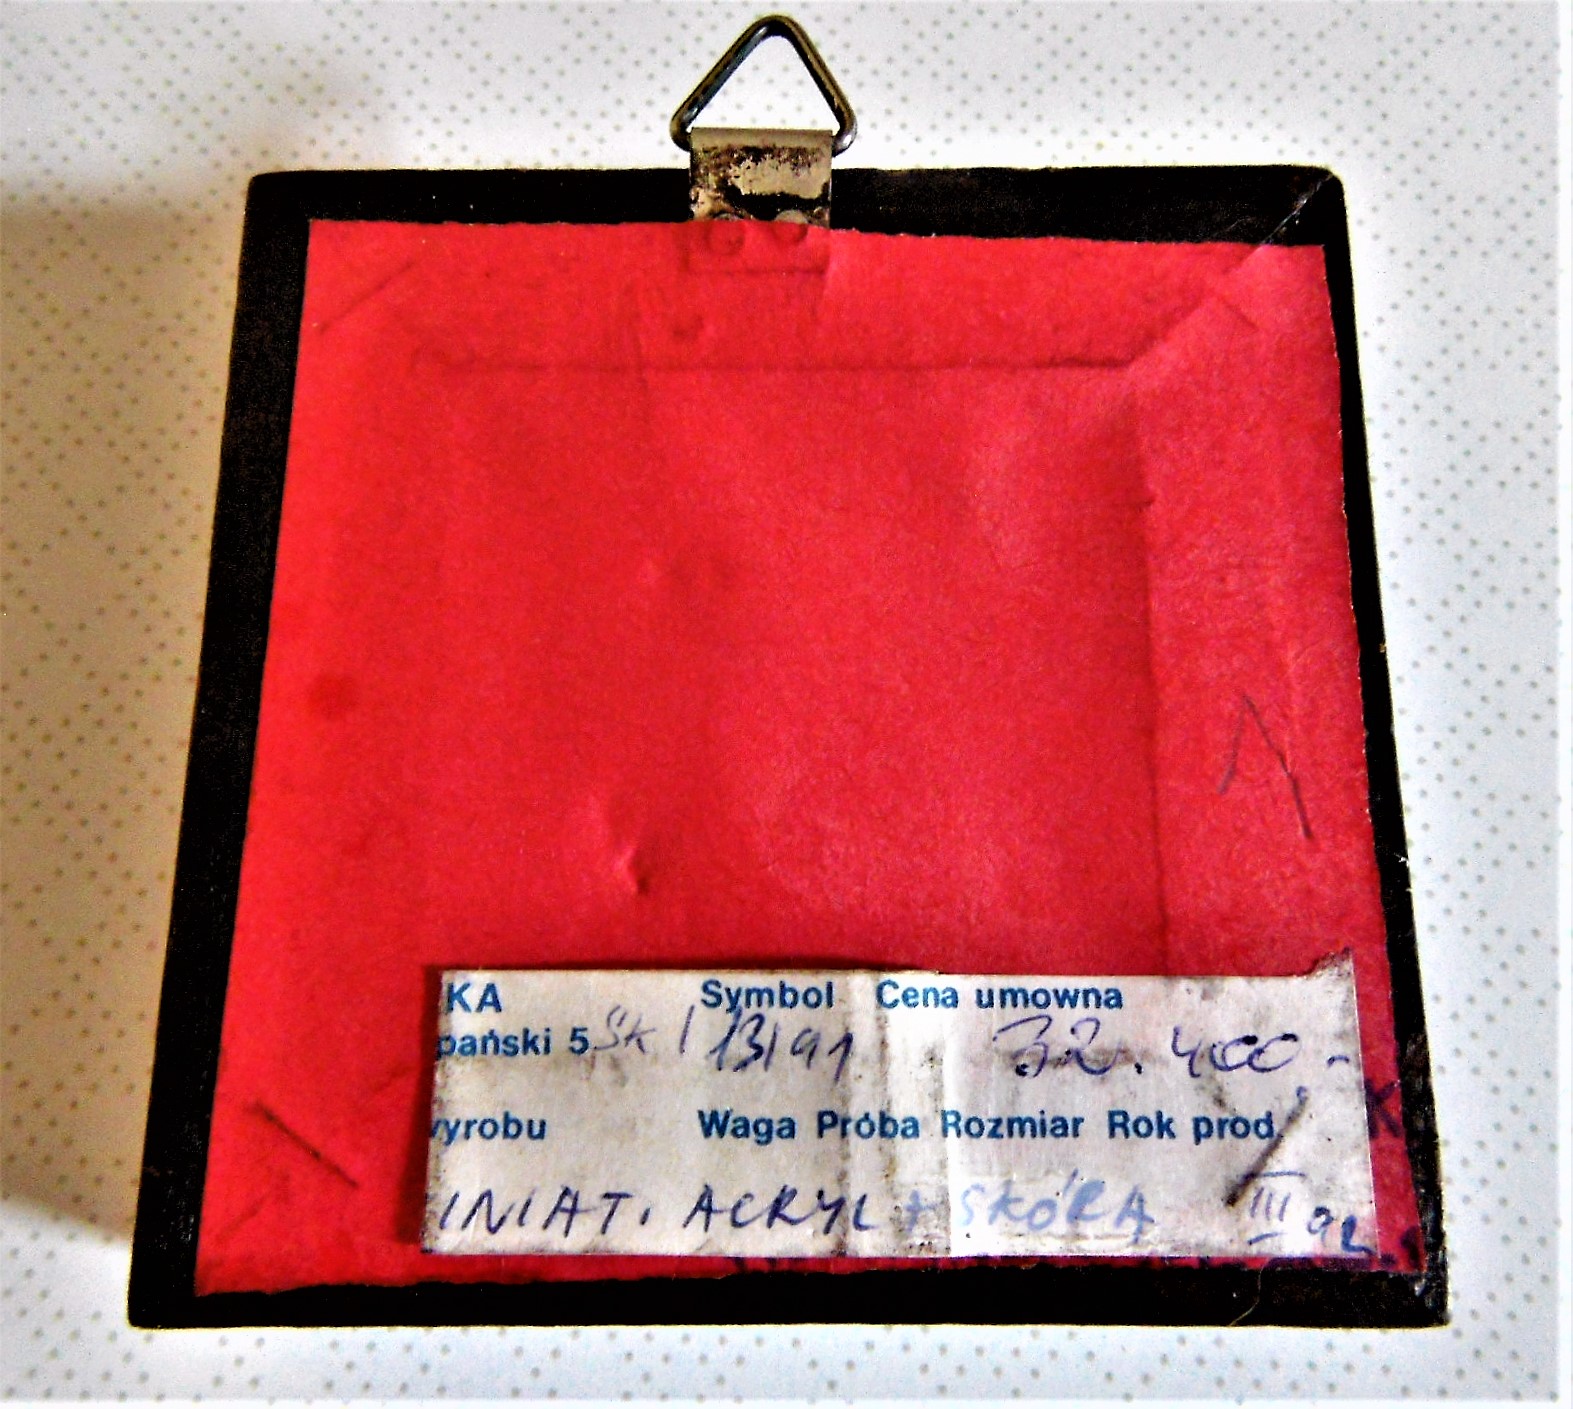 KA Symbol Cena umowna
pański 5 Sk / 13/91 32.400.-
yrobu Waga Próba Rozmiar Rok prod.
INIAT. ACRYL + SKÓRA III 92
K